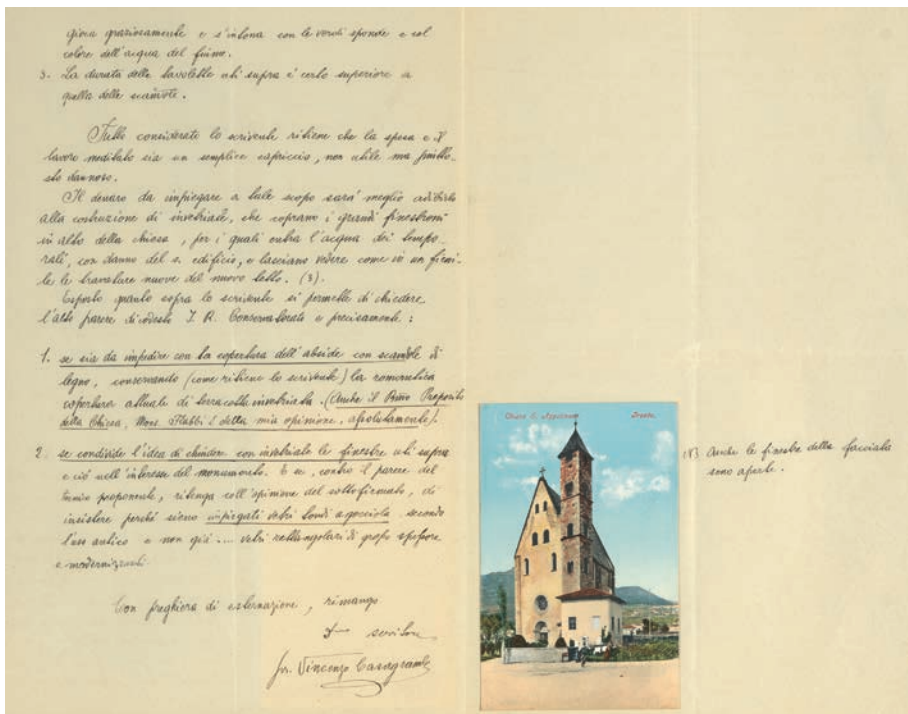 giova graziosamente e s'intona con le verdi sponde e col
colore dell'acqua del fiume.
3. La durata delle tavolette uti supra è certo superiore a
quella delle scandole.
Tutto considerato lo scrivente ritiene che la spesa e il
lavoro meditato sia un semplice capriccio, non utile ma piutto-
sto dannoso.
Il denaro da impiegare a tale scopo sará meglio adibirlo
alla costruzione di invetriate, che coprano i grandi finestroni
in alto della chiesa, per i quali entra l'acqua dei tempo-
rali, con danno del s. edificio, e lasciano vedere come in un fieni-
le le travature nuove del nuovo tetto. (3).
Esposto quanto sopra lo scrivente si permette di chiedere
l'alto parere di codesto I. R. Conservatorato e precisamente:
1. se sia da impedire con la copertura dell'abside con scandole di
legno, conservando (come ritiene lo scrivente) la romantica
copertura attuale di terracotte invetriata. (Anche il Rmo Preposito
della Chiesa, Mons. è della mia opinione, assolutamente).
2. se condivide l'idea di chiudere con invetriate le finestre uti supra
e ciò nell'interesse del monumento. E se, contro il parere del
proponente, ritenga coll'opinione del sottofirmato, di
insistere perchè sieno impiegati vetri tondi a gocciola secondo
l'uso antico e non già .... vetri rettangolari di grosso spessore
e modernizzanti.
Con preghiera di esternazione, rimango
servitore
Vincenzo Casagrande
Chiesa S. Appolinare Trento.
(3) Anche le finestre della facciata
sono aperte.